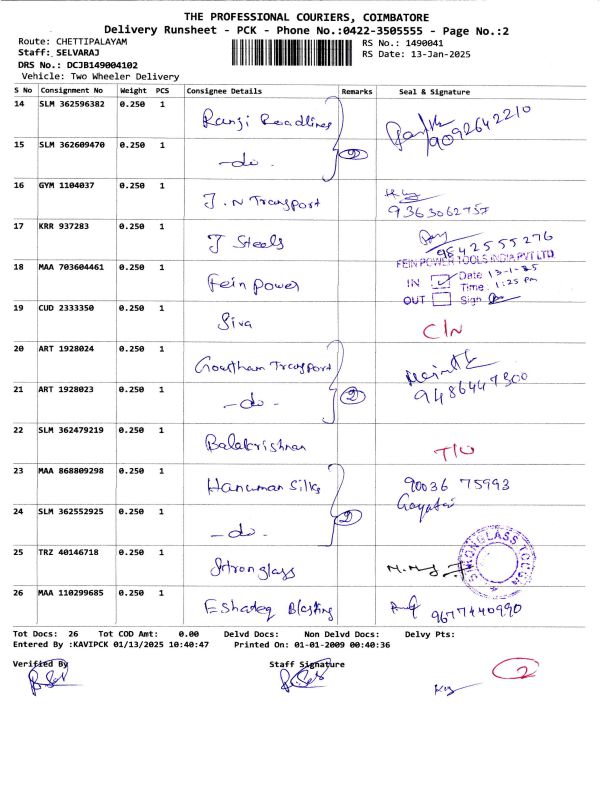 THE PROFESSIONAL COURIERS, COIMBATORE
Delivery Runsheet - PCK - Phone No.:0422-3505555 - Page No.:2
Route: CHETTIPALAYAM
RS No.: 1490041
Staff: SELVARAJ
RS Date: 13-Jan-2025
DRS No.: DCJB149004102
Vehicle: Two Wheeler Delivery
S No Consignment No Weight PCS Consignee Details Remarks Seal & Signature
14 SLM 362596382 0.250 1 Ranji Roadlines 9092642210
15 SLM 362609470 0.250 1 -do- 2
16 GYM 1104037 0.250 1 J.N Transport
17 KRR 937283 0.250 1 J Steels 9542555276
FEIN POWER TOOLS INDIA PVT LTD
18 MAA 703604461 0.250 1 Fein Power IN Date 13-1-25
Time 1:25 pm
OUT Sign
19 CUD 2333350 0.250 1 Siva C/N
20 ART 1928024 0.250 1 Goutham Transport
21 ART 1928023 0.250 1 -do- 2 9486447300
22 SLM 362479219 0.250 1 Balakrishnan T/O
23 MAA 868809298 0.250 1 Hanuman Silks 90036 75993
Gayatri
24 SLM 362552925 0.250 1 -do- 2
25 TRZ 40146718 0.250 1 Strong glass
26 MAA 110299685 0.250 1 Eshadeq Blasting 9677440990
Tot Docs: 26 Tot COD Amt: 0.00 Delvd Docs: Non Delvd Docs: Delvy Pts:
Entered By :KAVIPCK 01/13/2025 10:40:47 Printed On: 01-01-2009 00:40:36
Verified By Staff Signature
2